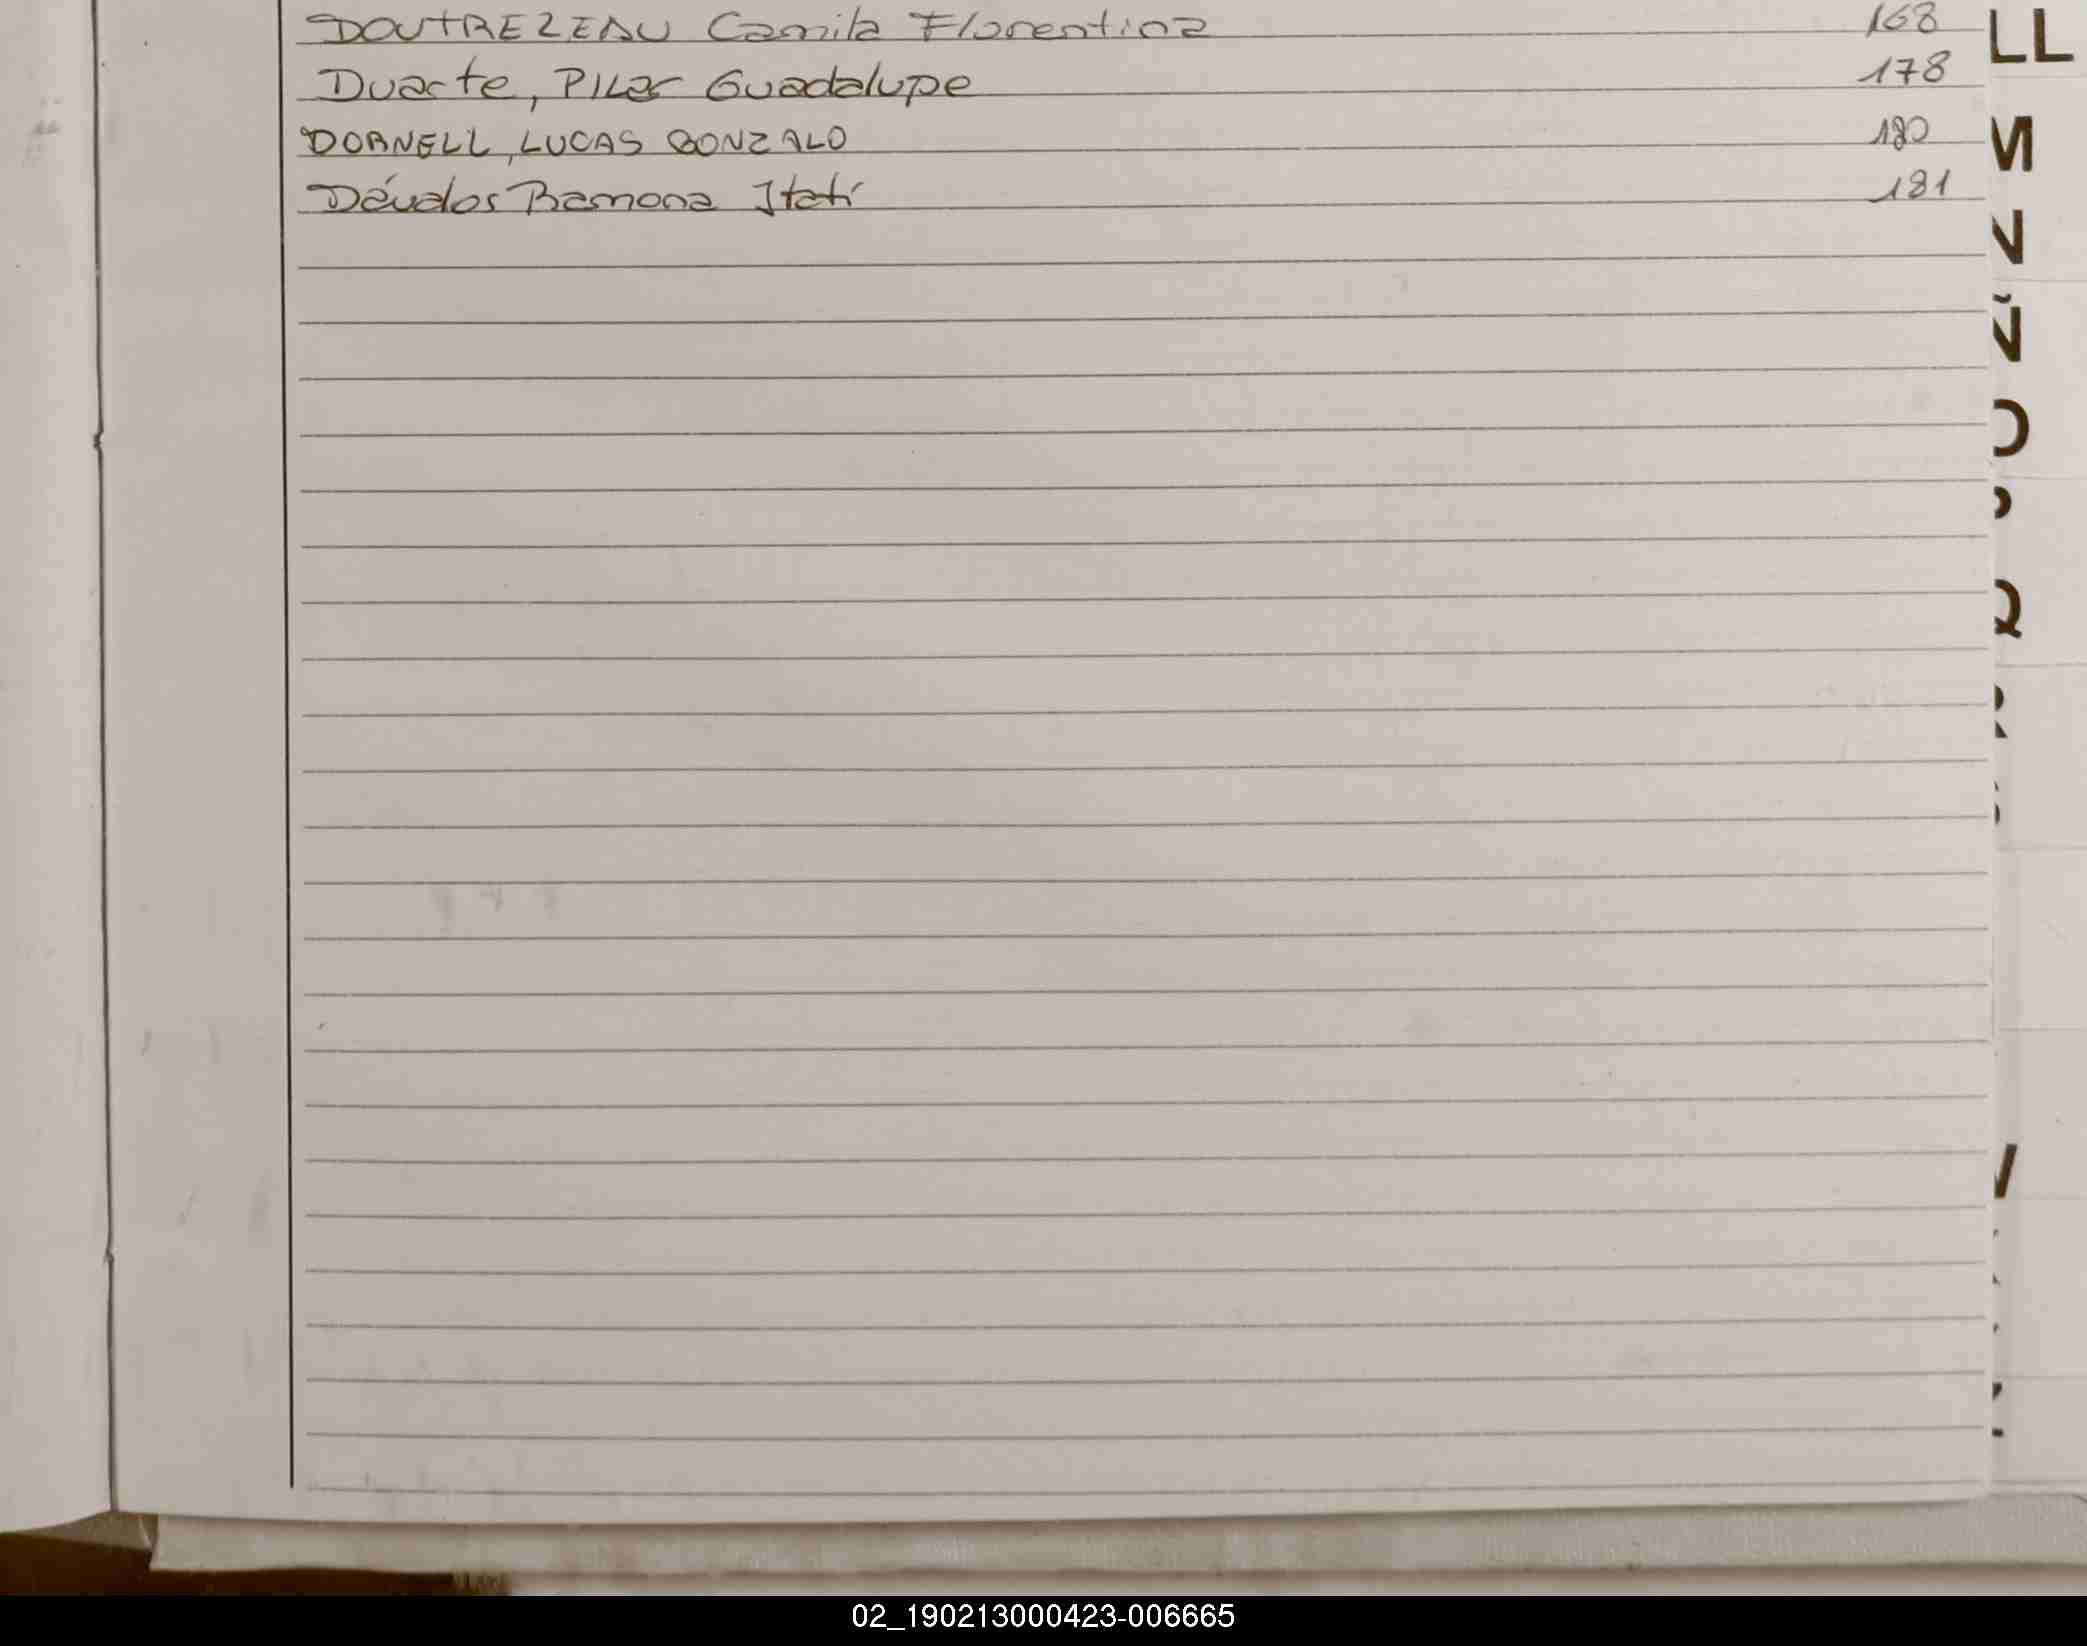 DOUTREZEAU Camila Florentina 168
Duarte, Pilar Guadalupe 178
DORNELL, LUCAS GONZALO 180
Dávalos Ramona Itatí 181
LL
M
N
Ñ
O
P
Q
R
S
V
02_190213000423-006665